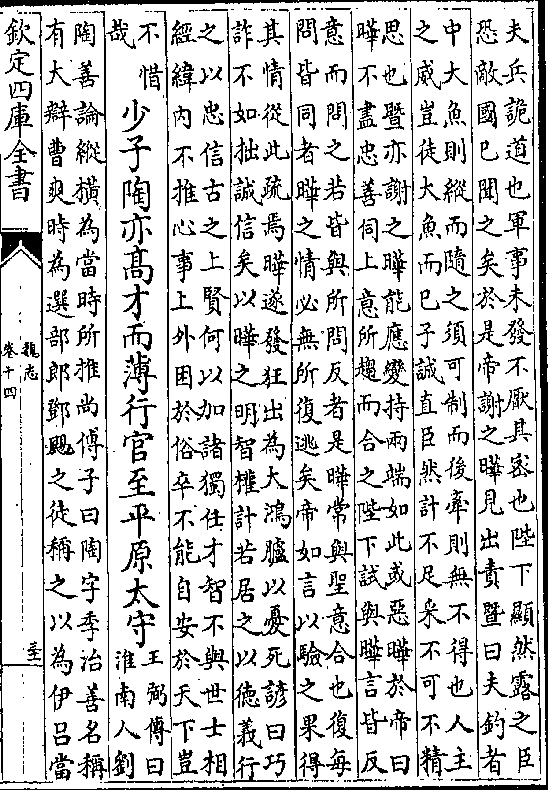 夫兵詭道也軍事未發不厭其宻也陛下顯然露之臣
恐敵國已聞之矣於是帝謝之曄見出責暨曰夫釣者
中大魚則縱而隨之須可制而後牽則無不得也人主
之威豈徒大魚而已子誠直臣然計不足采不可不精
思也暨亦謝之曄能應變持兩端如此或惡曄於帝曰
曄不盡忠善伺上意所趨而合之陛下試與曄言皆反
意而問之若皆與所問反者是曄常與聖意合也復每
問皆同者曄之情必無所復逃矣帝如言以驗之果得
其情從此疏焉曄遂發狂出為大鴻臚以憂死諺曰巧
詐不如拙誠信矣以曄之明智權計若居之以徳義行
之以忠信古之上賢何以加諸獨任才智不與世士相
經緯內不推心事上外困於俗卒不能自安於天下豈
不惜
哉
少子陶亦髙才而薄行官至平原太守
王弼傳曰
淮南人劉
陶善論縱橫為當時所推尚傅子曰陶字季治善名稱
有大辯曹爽時為選部郎鄧颺之徒稱之以為伊呂當
欽定四庫全書
魏志
卷十四